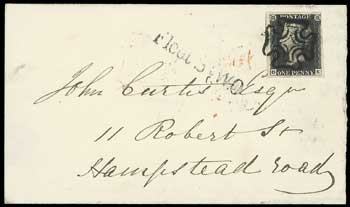 POSTAGE
ONE PENNY
Fleet St
John Curtis Esqr
11 Robert St
Hampstead Road